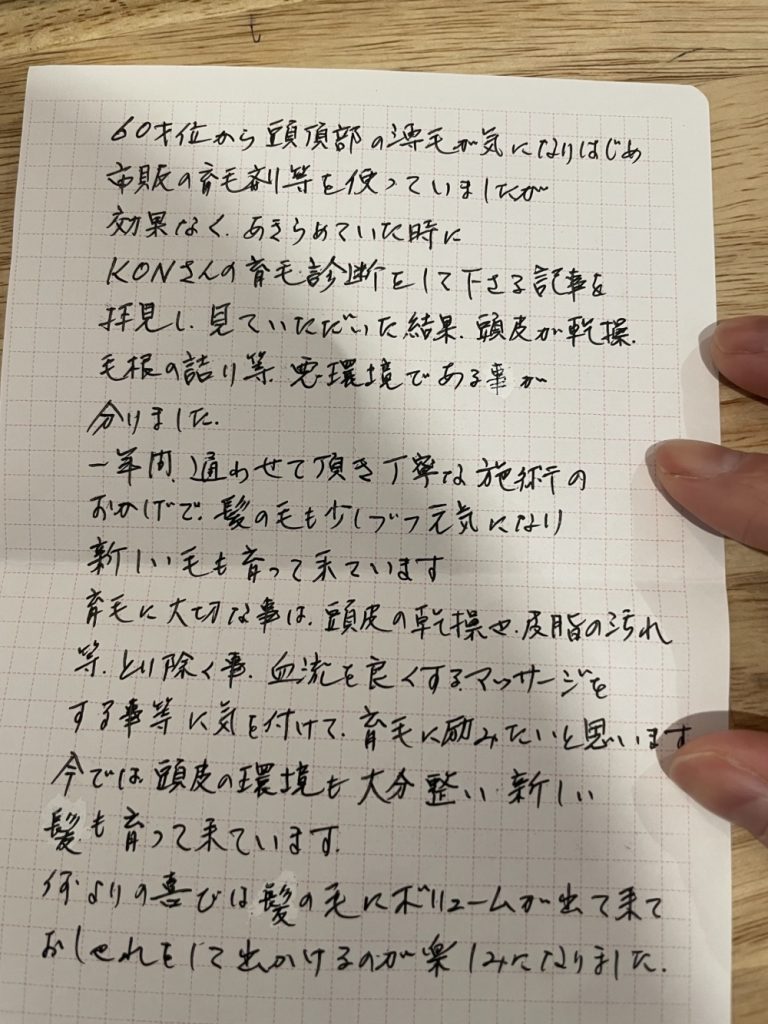 60才位から頭頂部の薄毛が気になりはじめ
市販の育毛剤等を使っていましたが
効果なく、あきらめていた時に
KONさんの育毛診断をして下さる記事を
拝見し、見ていただいた結果、頭皮が乾操、
毛根の詰り等、悪環境である事が
分りました。
一年間、通わせて頂き丁寧な施術の
おかげで、髪の毛も少しづつ元気になり
新しい毛も育って来ています
育毛に大切な事は、頭皮の乾操や、皮脂の汚れ
等、とり除く事、血流を良くするマッサージを
する事等に気を付けて、育毛に励みたいと思います
今では頭皮の環境も大分整い新しい
髪も育って来ています。
何よりの喜びは髪の毛にボリュームが出て来て
おしゃれをして出かけるのが楽しみになりました。